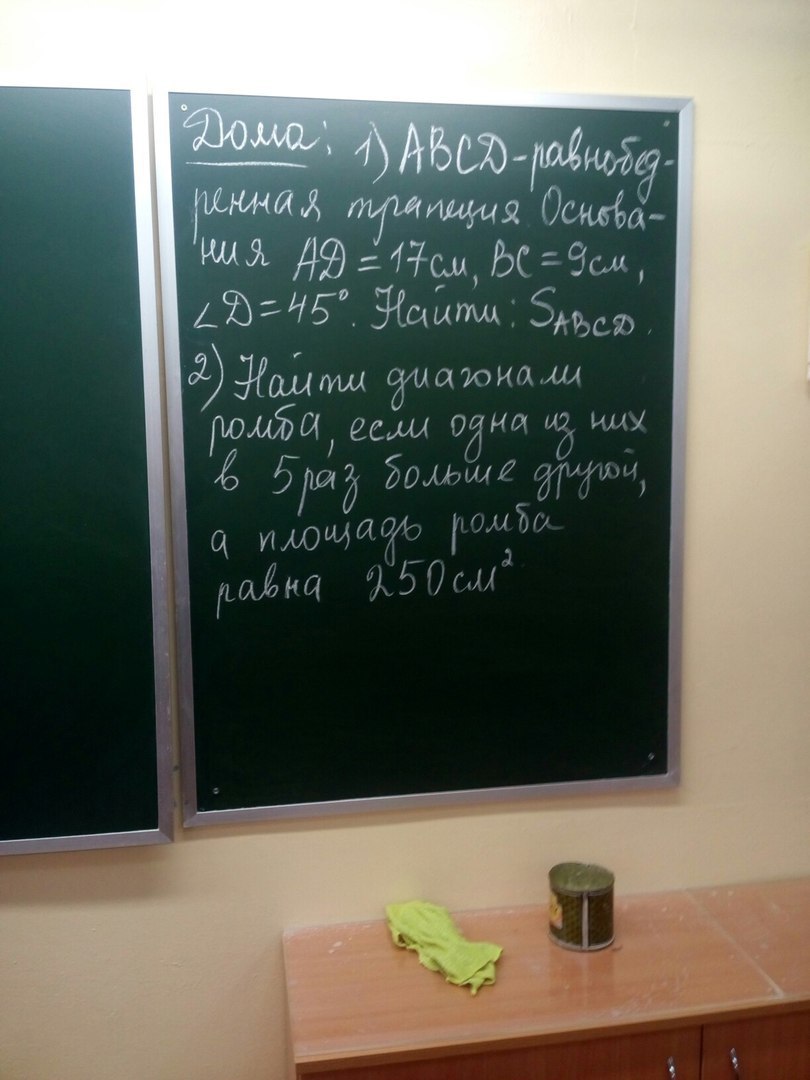 Дома: 1) ABCD-равнобед-
ренная трапеция. Основа-
ния AD = 17см, BC = 9см,
∠D = 45°. Найти: SABCD.
2) Найти диагонали
ромба, если одна из них
в 5 раз больше другой,
а площадь ромба
равна 250 см²